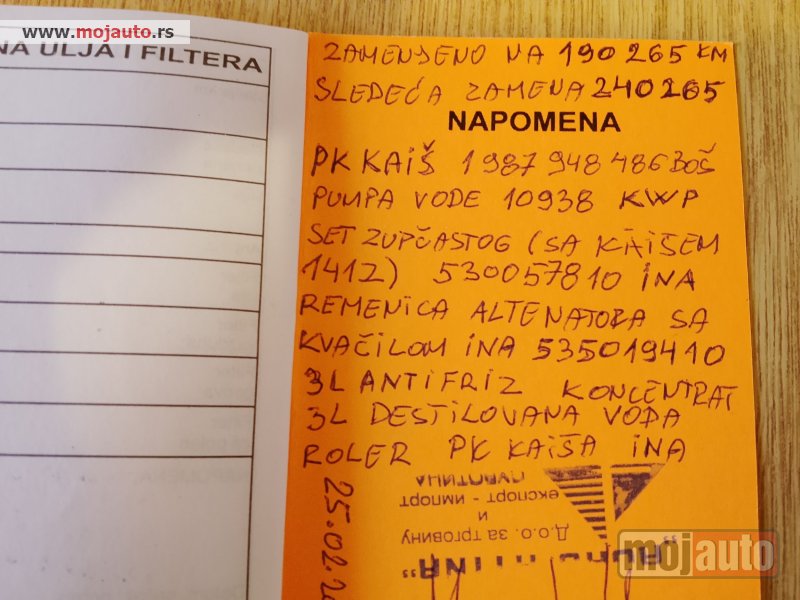 www.mojauto.rs
NA ULJA I FILTERA
ZAMENJENO NA 190 265 KM
SLEDEĆA ZAMENA 240 265
NAPOMENA
PK KAIŠ 1987 948 486 BOŠ
PUMPA VODE 10938 KWP
SET ZUPČASTOG (SA KAIŠEM
141Z) 530057810 INA
REMENICA ALTENATORA SA
KVAČILOM INA 535019410
3L ANTIFRIZ KONCENTRAT
3L DESTILOVANA VODA
ROLER PK KAIŠA INA
25.02.2
Д.о.о. за трговину
и
експорт - импорт
СУБОТИЦА
mojauto